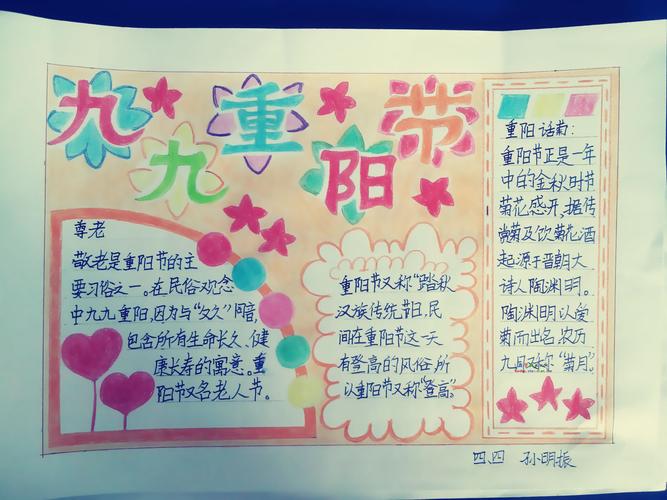 九九重阳节
尊老
敬老是重阳节的主
要习俗之一。在民俗观念
中九九重阳，因为与“久久”同音，
包含所有生命长久、健
康长寿的寓意。重
阳节又名老人节。
重阳节又称“踏秋
汉族传统节日，民
间在重阳节这一天
有登高的风俗，所
以重阳节又称“登高”。
重阳话菊：
重阳节正是一年
中的金秋时节
菊花盛开，据传
赏菊及饮菊花酒
起源于晋朝大
诗人陶渊明。
陶渊明以爱
菊而出名，农历
九月又称“菊月”。
四、四 孙明振